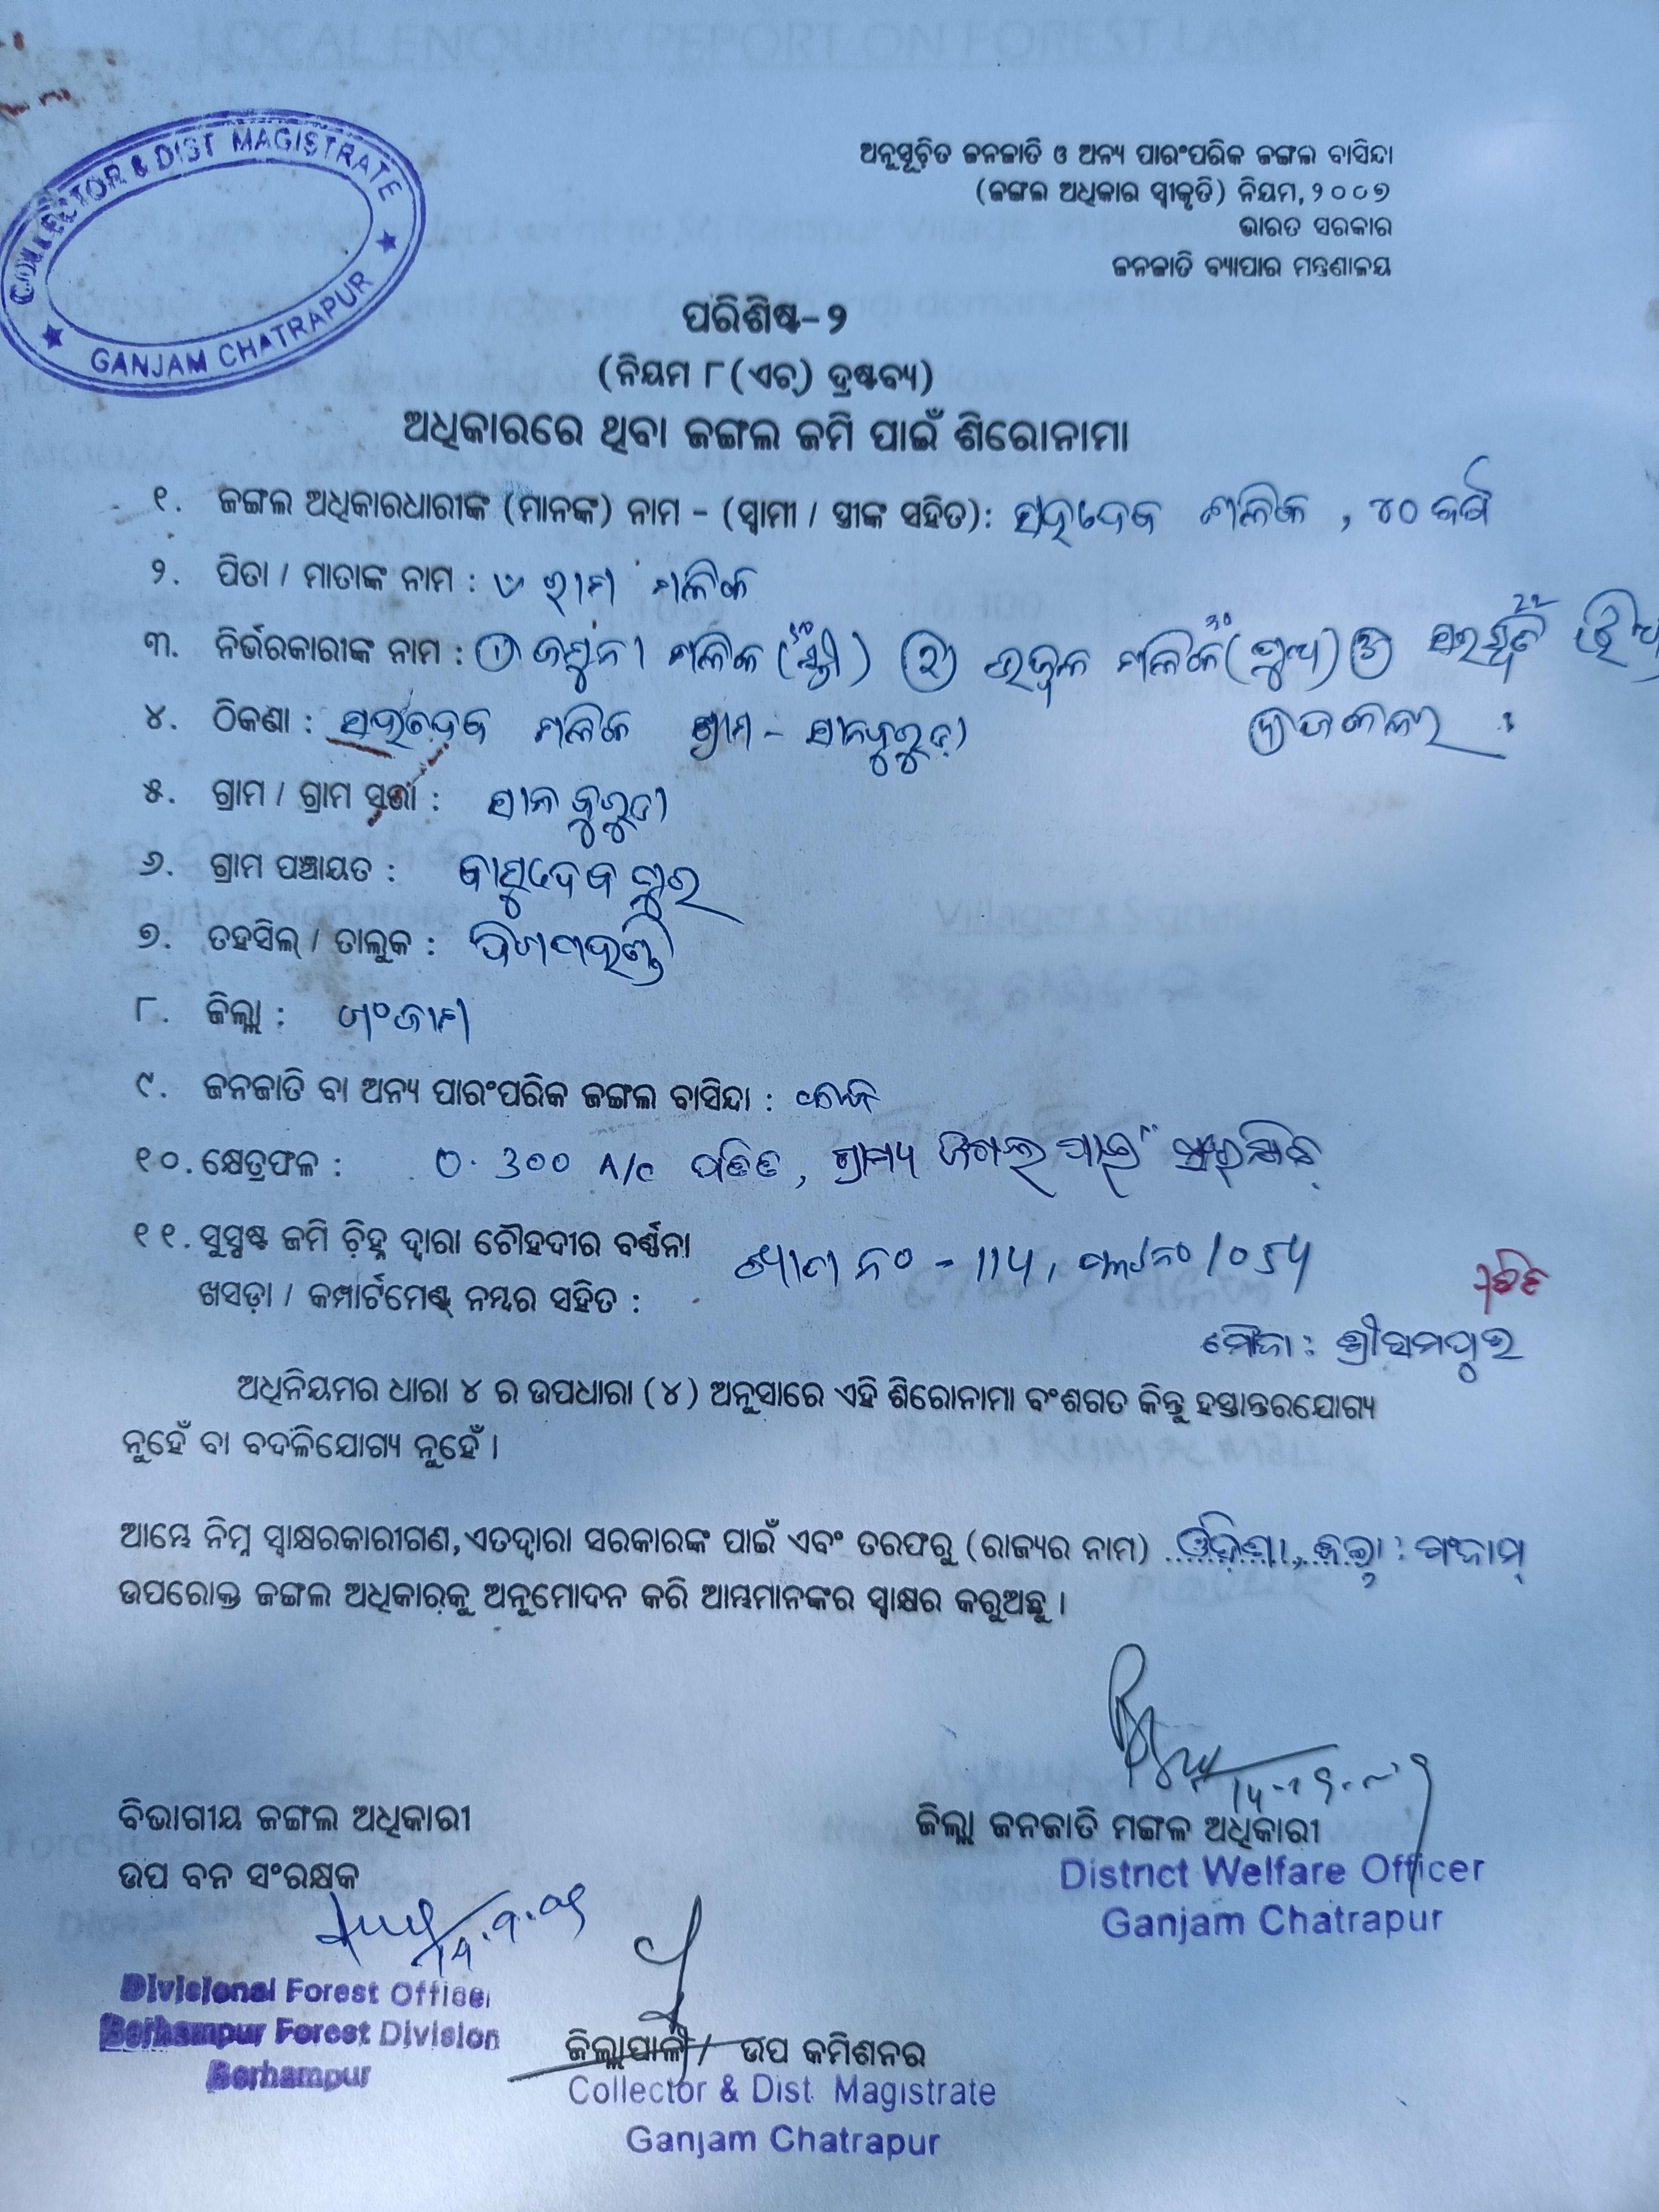 COLLECTOR & DIST MAGISTRATE
GANJAM CHATRAPUR
ଅନୁସୂଚିତ ଜନଜାତି ଓ ଅନ୍ୟ ପାରଂପରିକ ଜଙ୍ଗଲ ବାସିନ୍ଦା
(ଜଙ୍ଗଲ ଅଧିକାର ସ୍ୱୀକୃତି) ନିୟମ, ୨୦୦୭
ଭାରତ ସରକାର
ଜନଜାତି ବ୍ୟାପାର ମନ୍ତ୍ରଣାଳୟ
ପରିଶିଷ୍ଟ-୨
(ନିୟମ ୮ (ଏଚ୍) ଦ୍ରଷ୍ଟବ୍ୟ)
ଅଧିକାରରେ ଥିବା ଜଙ୍ଗଲ ଜମି ପାଇଁ ଶିରୋନାମା
୧. ଜଙ୍ଗଲ ଅଧିକାରଧାରୀଙ୍କ (ମାନଙ୍କ) ନାମ - (ସ୍ୱାମୀ / ସ୍ତ୍ରୀଙ୍କ ସହିତ): ସହଦେବ ମଲିକ , ୪୦ ବର୍ଷ
୨. ପିତା / ମାତାଙ୍କ ନାମ : ରାମ ମଲିକ
୩. ନିର୍ଭରକାରୀଙ୍କ ନାମ : ① ଜମୁନା ମଲିକ (ସ୍ତ୍ରୀ) ② ଉଜ୍ଜ୍ୱଳ ମଲିକ (ପୁଅ) ③
୪. ଠିକଣା : ସହଦେବ ମଲିକ ଗ୍ରାମ - ସାନକୁରୁଡ଼ା
୫. ଗ୍ରାମ / ଗ୍ରାମ ସଭା : ସାନକୁରୁଡା
୬. ଗ୍ରାମ ପଞ୍ଚାୟତ : ବାସୁଦେବପୁର
୭. ତହସିଲ୍ / ତାଲୁକ : ଦିଗପହଣ୍ଡି
୮. ଜିଲ୍ଲା : ଗଂଜାମ
୯. ଜନଜାତି ବା ଅନ୍ୟ ପାରଂପରିକ ଜଙ୍ଗଲ ବାସିନ୍ଦା :
୧୦. କ୍ଷେତ୍ରଫଳ : ୦.300 A/c ପତିତ, ଗ୍ରାମ୍ୟ ଜଙ୍ଗଲ ପାଇଁ ସଂରକ୍ଷିତ
୧୧. ସୁସ୍ପଷ୍ଟ ଜମି ଚିହ୍ନ ଦ୍ୱାରା ଚୌହଦୀର ବର୍ଣ୍ଣନା
ଖସଡ଼ା / କମ୍ପାର୍ଟମେଣ୍ଟ ନମ୍ବର ସହିତ : ଖାତା ନଂ - 114, ପ୍ଲଟ ନଂ 1054
ମୌଜା : ଶ୍ରୀରାମପୁର
ଅଧିନିୟମର ଧାରା ୪ ର ଉପଧାରା (୪) ଅନୁସାରେ ଏହି ଶିରୋନାମା ବଂଶଗତ କିନ୍ତୁ ହସ୍ତାନ୍ତରଯୋଗ୍ୟ
ନୁହେଁ ବା ବଦଳିଯୋଗ୍ୟ ନୁହେଁ ।
ଆମ୍ଭେ ନିମ୍ନ ସ୍ୱାକ୍ଷରକାରୀଗଣ, ଏତଦ୍ୱାରା ସରକାରଙ୍କ ପାଇଁ ଏବଂ ତରଫରୁ (ରାଜ୍ୟର ନାମ) ଓଡ଼ିଶା, ଜିଲ୍ଲା : ଗଂଜାମ୍
ଉପରୋକ୍ତ ଜଙ୍ଗଲ ଅଧିକାରକୁ ଅନୁମୋଦନ କରି ଆମ୍ଭମାନଙ୍କର ସ୍ୱାକ୍ଷର କରୁଅଛୁ ।
ବିଭାଗୀୟ ଜଙ୍ଗଲ ଅଧିକାରୀ
ଉପ ବନ ସଂରକ୍ଷକ
Divisional Forest Officer
Berhampur Forest Division
Berhampur
ଜିଲ୍ଲା ଜନଜାତି ମଙ୍ଗଳ ଅଧିକାରୀ
District Welfare Officer
Ganjam Chatrapur
ଜିଲ୍ଲାପାଳ / ଉପ କମିଶନର
Collector & Dist. Magistrate
Ganjam Chatrapur